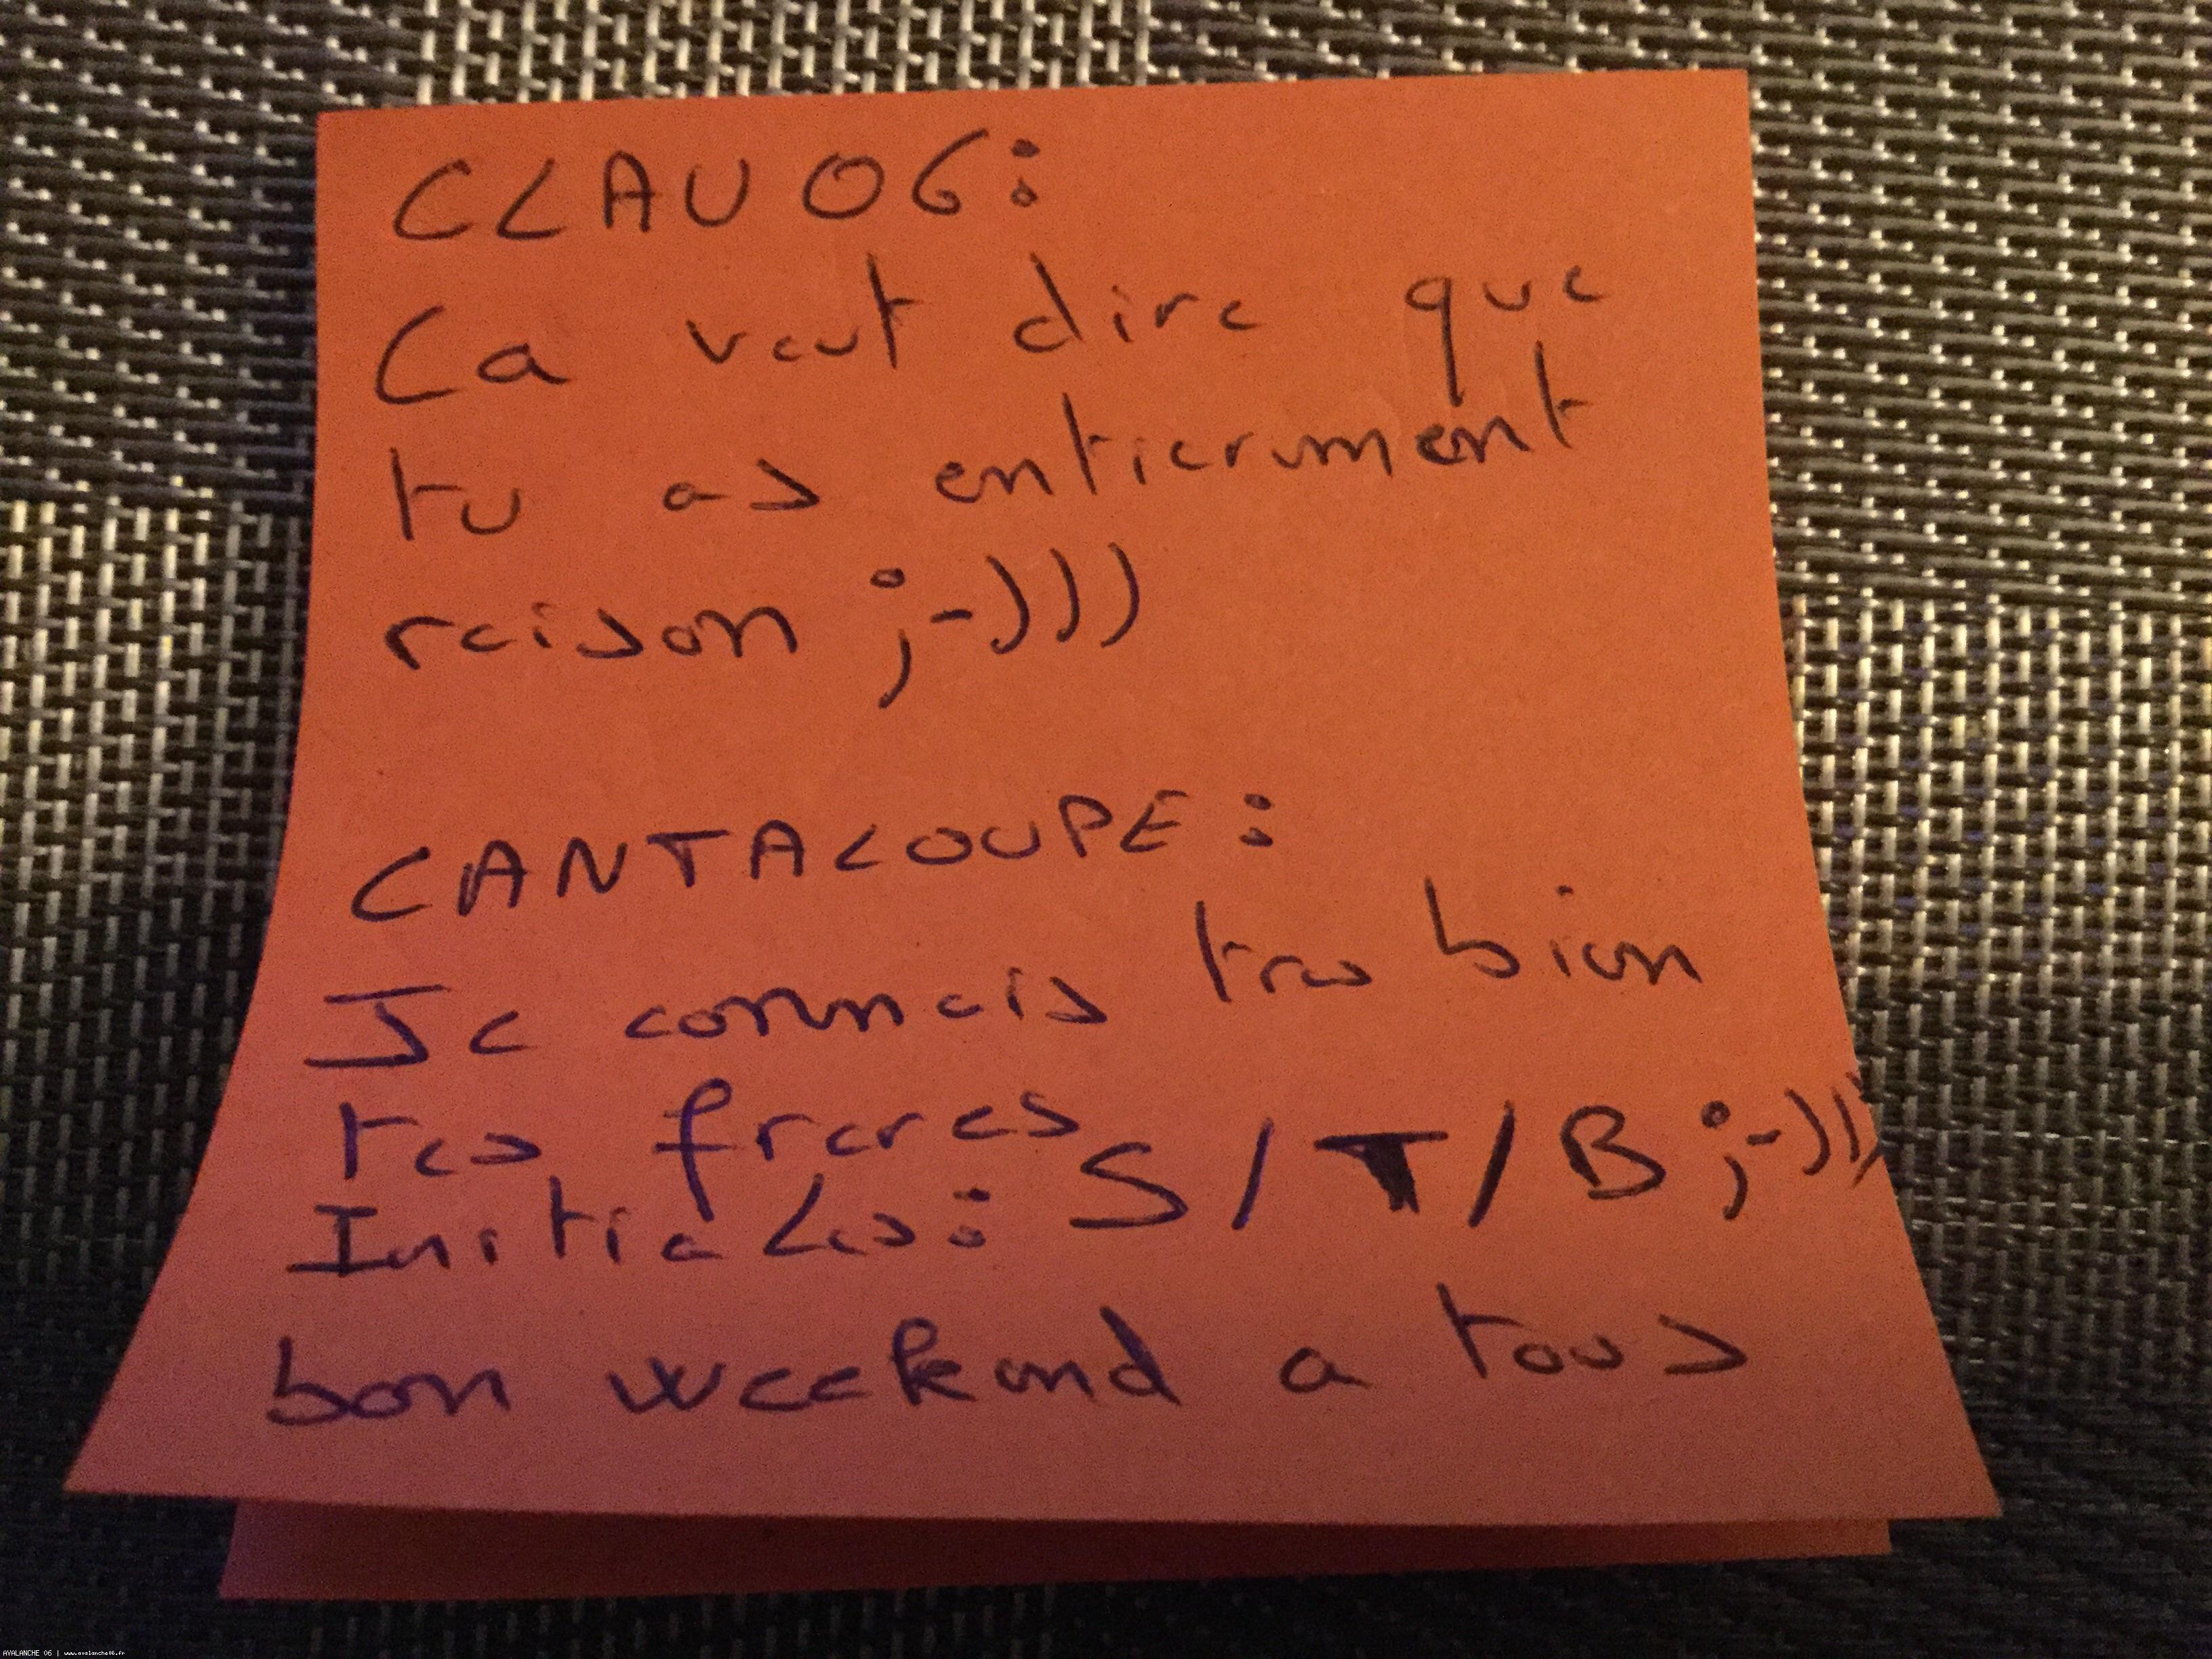 CLAU06:
Ca veut dire que
tu as entierement
raison ;-)))
CANTALOUPE:
Je connais tres bien
tes freres
Initiales: S/T/B ;-)))
bon weekend a tous
AVALANCHE 06 | www.avalanche06.fr